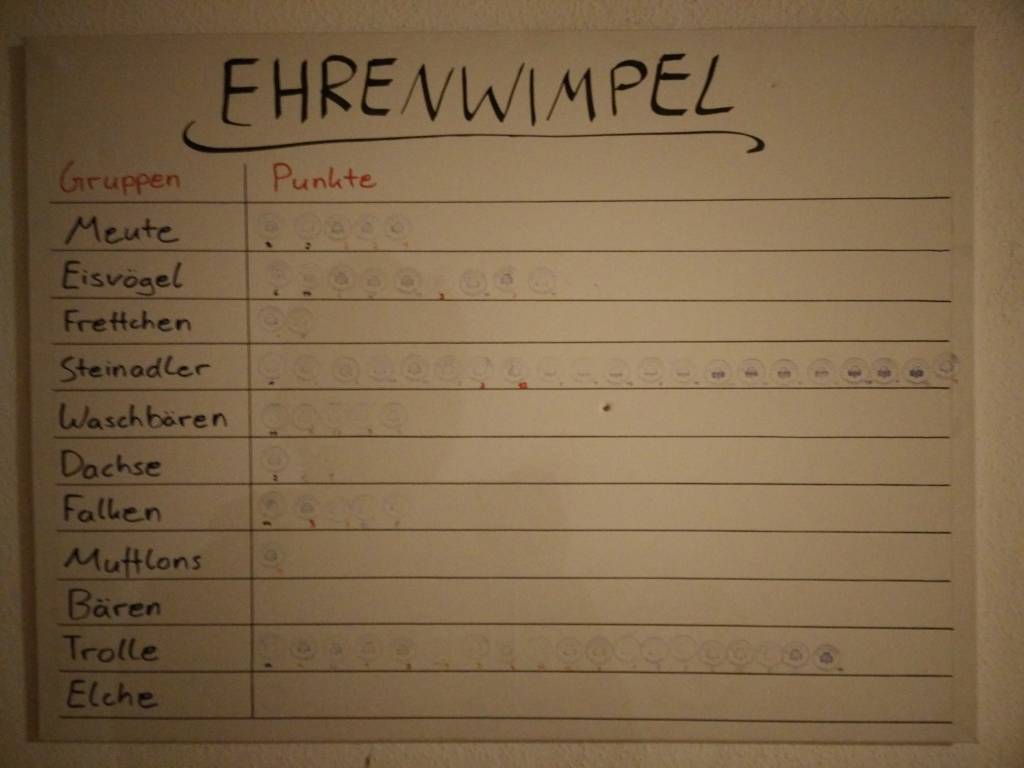 EHRENWIMPEL
Gruppen Punkte
Meute
Eisvögel
Frettchen
Steinadler
Waschbären
Dachse
Falken
Mufflons
Bären
Trolle
Elche